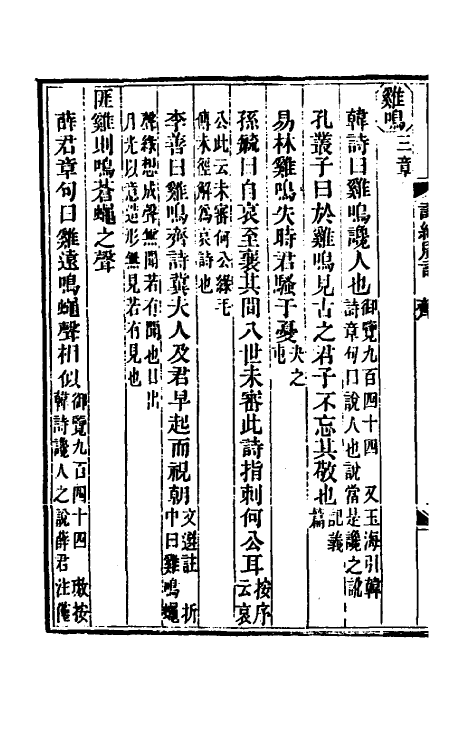 雞鳴三章
韓詩曰雞鳴讒人也御覽九百四十四 又玉海引韓詩章句曰說人也說當是讒之訛
孔叢子曰於雞鳴見古之君子不忘其敬也記義篇
易林雞鳴失時君騷于憂夬之屯
孫毓曰自哀至襄其間八世未審此詩指刺何公耳按序云哀
公此云未審何公緣毛傳未徑解為哀詩也
李善曰雞鳴齊詩冀夫人及君早起而視朝文選註 折中曰雞鳴蠅
聲緣想成聲無聞若有聞也日出月光以意造形無見若有見也
匪雞則鳴蒼蠅之聲
薛君章句曰雞遠鳴蠅聲相似御覽九百四十四 璈按韓詩讒人之說薛君注僅